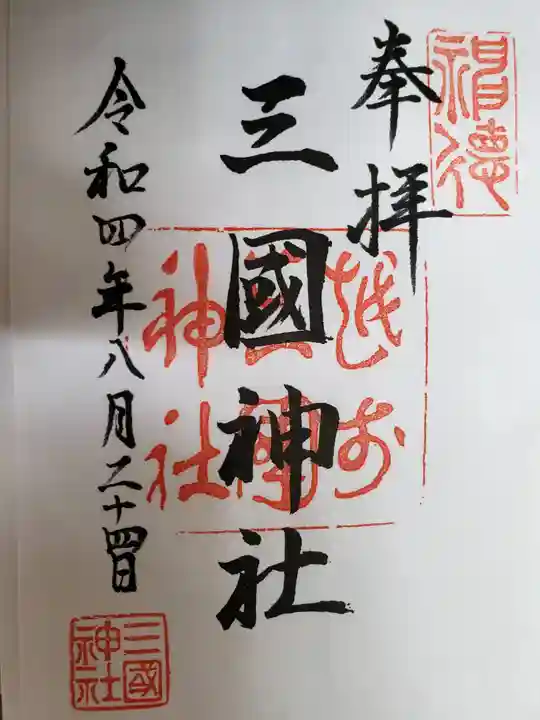 神徳
奉拝
越前
三國
神社
三國神社
令和四年八月二十四日
三國
神社